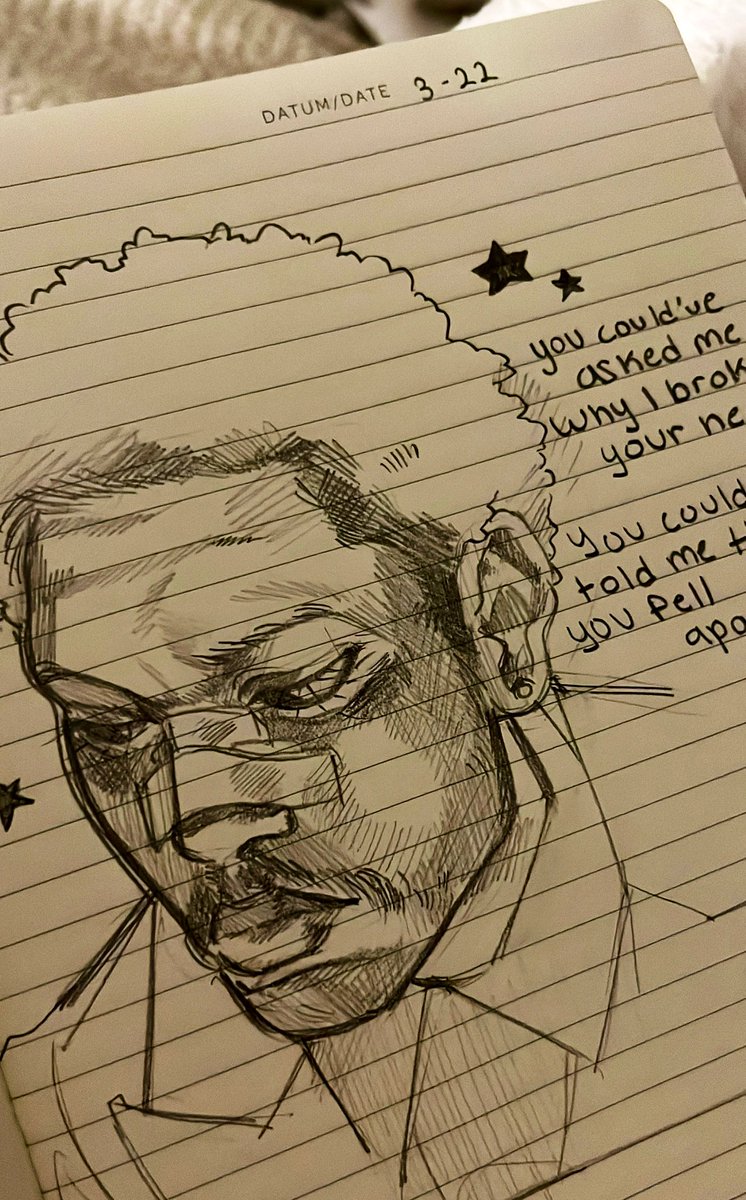 DATUM/DATE 3-22
you could've
asked me
why I brok
your ne
You could
told me t
you fell
apo